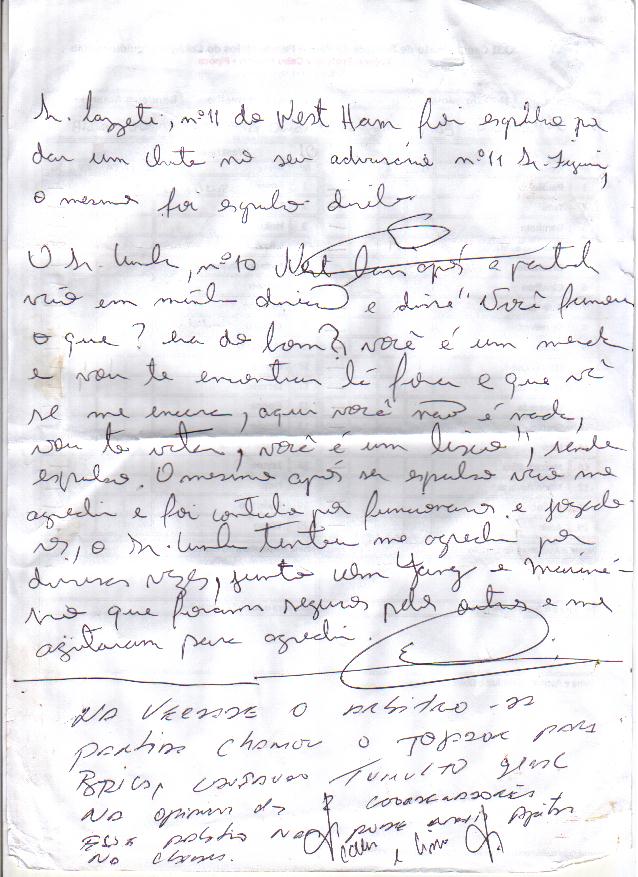 Sr. Lazzeti, nº 11 do West Ham foi expulso por
dar um chute no seu adversário nº 11 Sr.
o mesmo foi expulso direto.
O Sr., nº 10 West Ham após a partida
veio em minha direção e disse " Você fumou
o que? era do bom? você é um merda
e vou te encontrar lá fora e que vê
se me encara, aqui você não é nada,
vou te, você é um lixo", sendo
expulso. O mesmo após ser expulso veio me
agredir e foi contido por funcionarios e jogado
res, o Sr. tentou me agredir por
diversas vezes, junto com Yang e
que foram seguros pelos outros e me
para agredir.
NA VERDADE O ARBITRO DA
PARTIDA CHAMOU O JOGADOR PARA
BRIGA, CAUSANDO TUMULTO GERAL
NA OPINIÃO DOS 2 COORDENADORES
ESSE ARBITRO NÃO PODE MAIS APITAR
NO
e